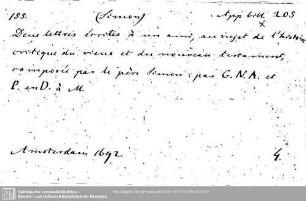 133. (Simon) App bibl 205
Deux lettres écrites à un ami, au sujet de l'histoire
critique du vieux et du nouveau testament,
composée par le père Simon: par C. N. A. et
P. en D. à M
Amsterdam 1692 4.
Sächsische Landesbibliothek -
Staats- und Universitätsbibliothek Dresden